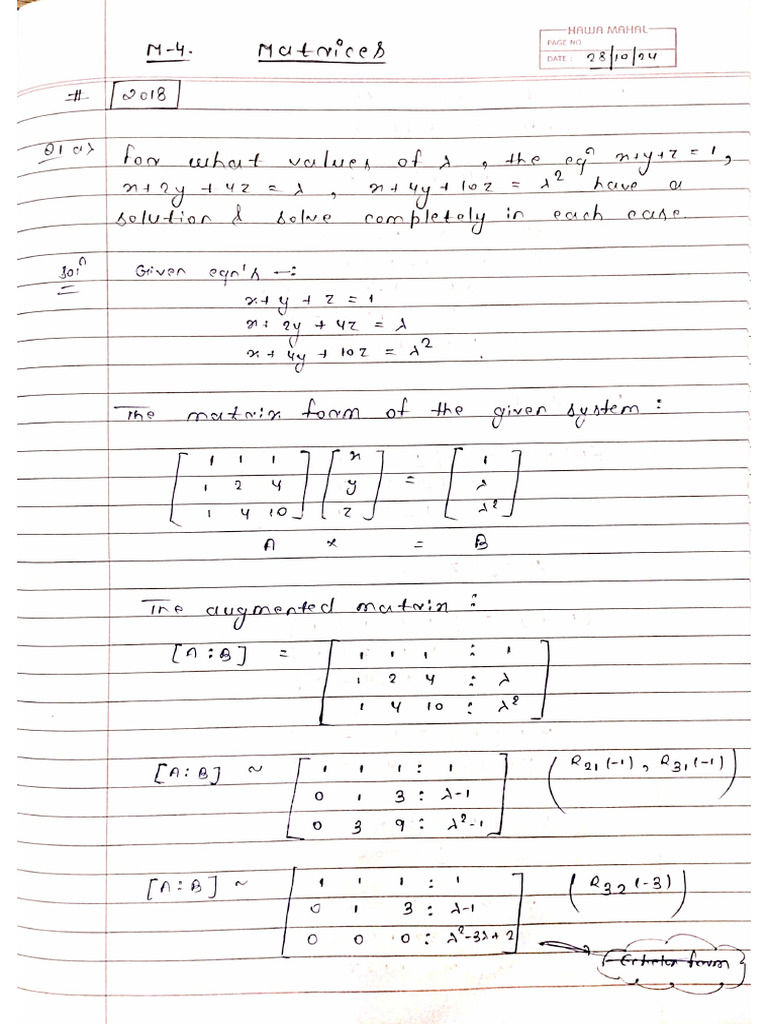 M-4. Matrices
HAWA MAHAL
PAGE NO
DATE: 28/10/24
# 2018
Q1 a) For what values of λ, the eqⁿ x+y+z=1,
x+2y+4z = λ, x+4y+10z = λ² have a
solution & solve completely in each case.
Solⁿ Given eqn's —:
x+y+z=1
x+2y+4z = λ
x+4y+10z = λ²
The matrix form of the given system:
[1 1 1] [x] = [1]
[1 2 4] [y] = [λ]
[1 4 10] [z] = [λ²]
A x = B
The augmented matrix:
[A:B] = [1 1 1 : 1]
[1 2 4 : λ]
[1 4 10 : λ²]
[A:B] ~ [1 1 1 : 1] (R21(-1), R31(-1))
[0 1 3 : λ-1]
[0 3 9 : λ²-1]
[A:B] ~ [1 1 1 : 1] (R32(-3))
[0 1 3 : λ-1]
[0 0 0 : λ²-3λ+2]
form